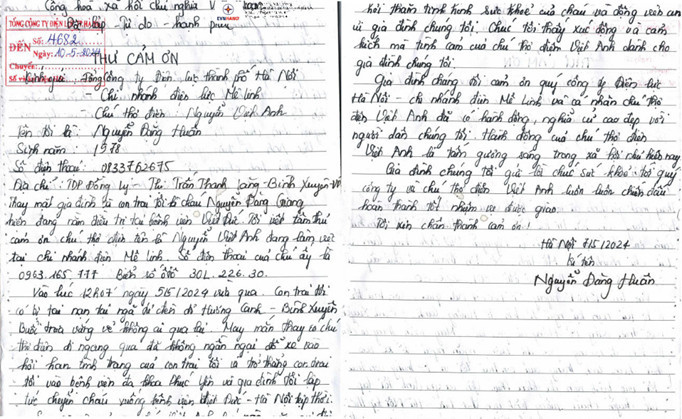 Cộng hoà xã hội chủ nghĩa V
Độc lập Tự do - hạnh phúc
EVNHANOI
TỔNG CÔNG TY ĐIỆN LỰC
ĐẾN Số: 4682
Ngày: 10-5-2024
Chuyển:
THƯ CẢM ƠN
Kính gửi: Tổng Công ty Điện lực thành phố Hà Nội
- Chi nhánh điện lực Mê linh
- Chú thợ điện: Nguyễn Việt Anh
Tên tôi là: Nguyễn Đăng Huấn
Sinh năm: 1978
Số điện thoại: 0833762675
Địa chỉ: TDP Đồng Lý - Thị Trấn Thanh Lãng - Bình Xuyên - VP
Thay mặt gia đình là con trai tôi là cháu Nguyễn Đăng Giang
hiện đang nằm điều trị tại bệnh viện Việt Đức. Tôi viết tâm thư
cảm ơn chú thợ điện tên là Nguyễn Việt Anh đang làm việc
tại chi nhánh điện Mê linh. Số điện thoại của chú ấy là
0963.165.777 Biển số ôtô 30L.226.30.
Vào lúc 12h07 ngày 5/5/2024 vừa qua. Con trai tôi
có bị tai nạn tại ngã di chển đi Hương Canh - Bình Xuyên
Buổi trưa vắng vẻ không ai qua lại. May mắn thay có chú
thợ điện đi ngang qua đã không ngần ngại đỗ xe vào
hỏi han tình trạng của con trai tôi và trở thẳng con trai
tôi vào bệnh viện đa khoa Phúc Yên và gia đình tôi lập
tức chuyển cháu xuống bệnh viện Việt Đức - Hà Nội kịp thời.
hỏi thăm tình hình sức khoẻ của cháu và động viên an
ủi gia đình chúng tôi. Chúc tôi thấy xúc động và cảm
kích mà tình cảm của chú thợ điện Việt Anh dành cho
gia đình chúng tôi.
Gia đình chúng tôi cảm ơn quý công ty Điện lực
Hà Nội - chi nhánh điện Mê Linh và cá nhân chú thợ
điện Việt Anh đã có hành động, nghĩa cử cao đẹp với
người dân chúng tôi. Hành động của chú thợ điện
Việt Anh là tấm gương sáng trong xã hội như hiện nay
Gia đình chúng tôi gửi lời chúc sức khoẻ tới quý
công ty và chú thợ điện Việt Anh luôn luôn chiến đấu
hoàn thành tốt nhiệm vụ được giao.
Tôi xin chân thành cảm ơn!
Hà Nội 7/5/2024
Ký tên
Nguyễn Đăng Huấn